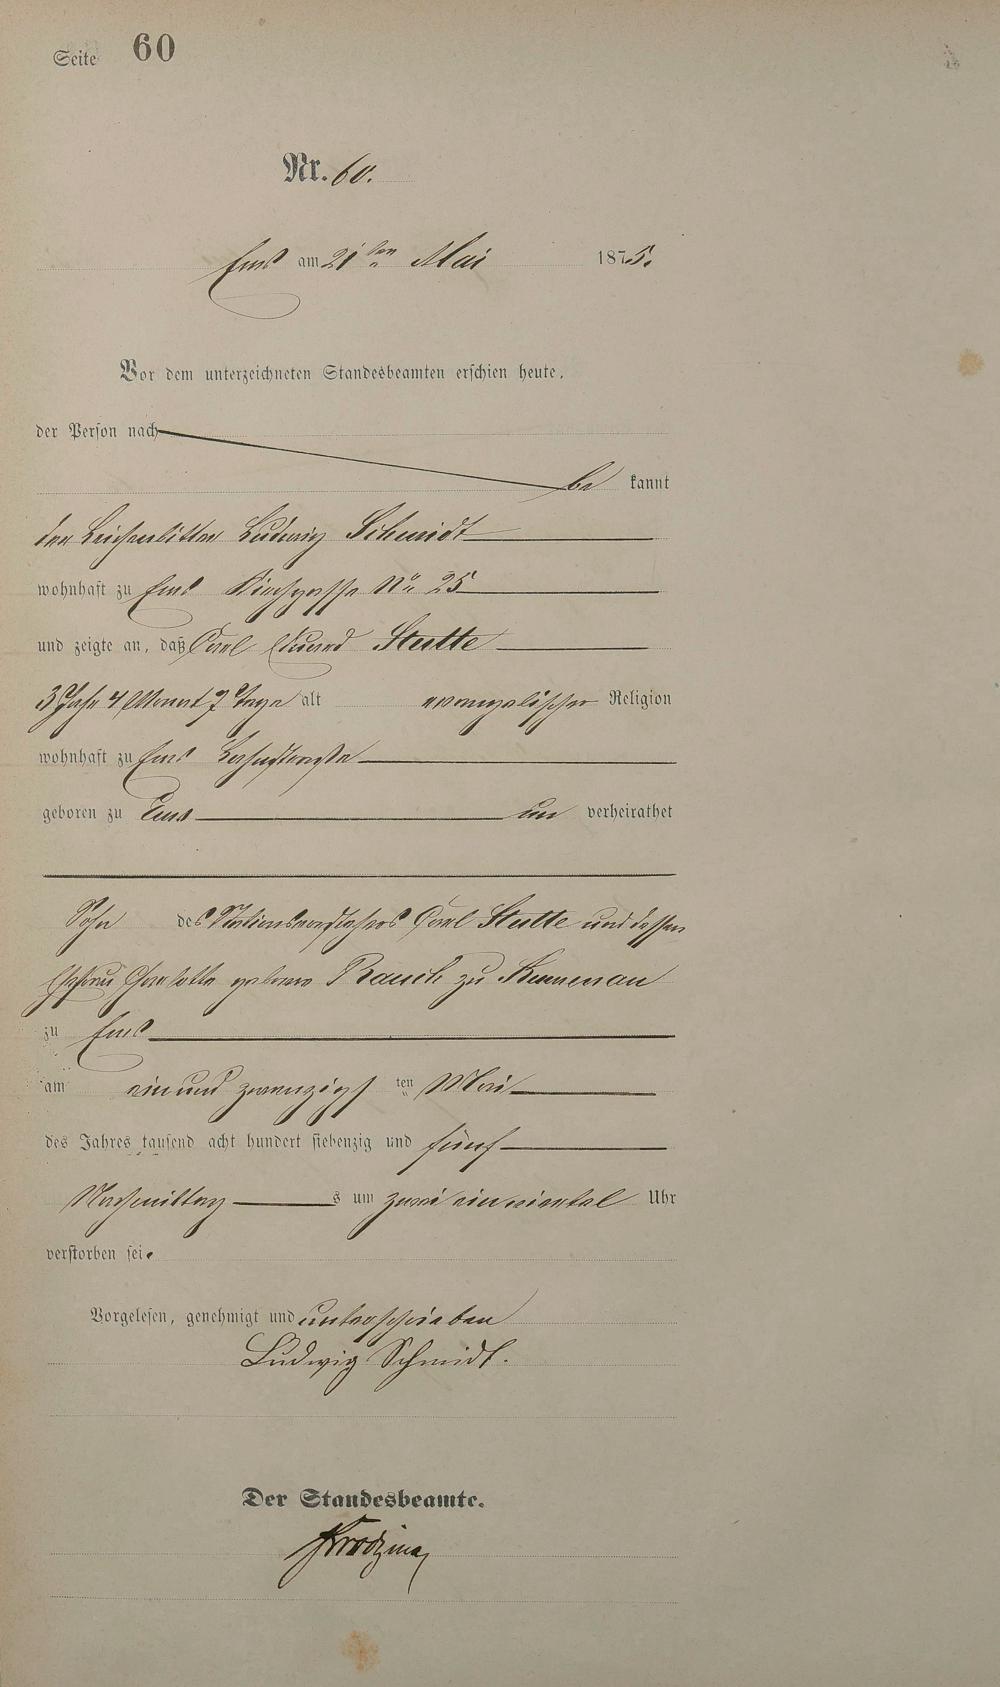 Seite 60
Nr. 60.
Ems am 21 ten Mai 1875.
Vor dem unterzeichneten Standesbeamten erschien heute,
der Person nach
be kannt
der Leichenbitter Ludwig Schmidt
wohnhaft zu Ems Kirchgasse No 25
und zeigte an, daß Carl Eduard Stutte
3 Jahr 4 Monat 7 Tage alt evangelischer Religion
wohnhaft zu Ems
geboren zu Ems un verheirathet
Sohn des Stationsvorstehers Carl Stutte und dessen
Ehefrau Charlotte geborene Rauch zu
zu Ems
am ein und zwanzigs ten Mai
des Jahres tausend acht hundert siebenzig und fünf
Nachmittag s um zwei ein viertel Uhr
verstorben sei.
Vorgelesen, genehmigt und unterschrieben
Ludwig Schmidt.
Der Standesbeamte.